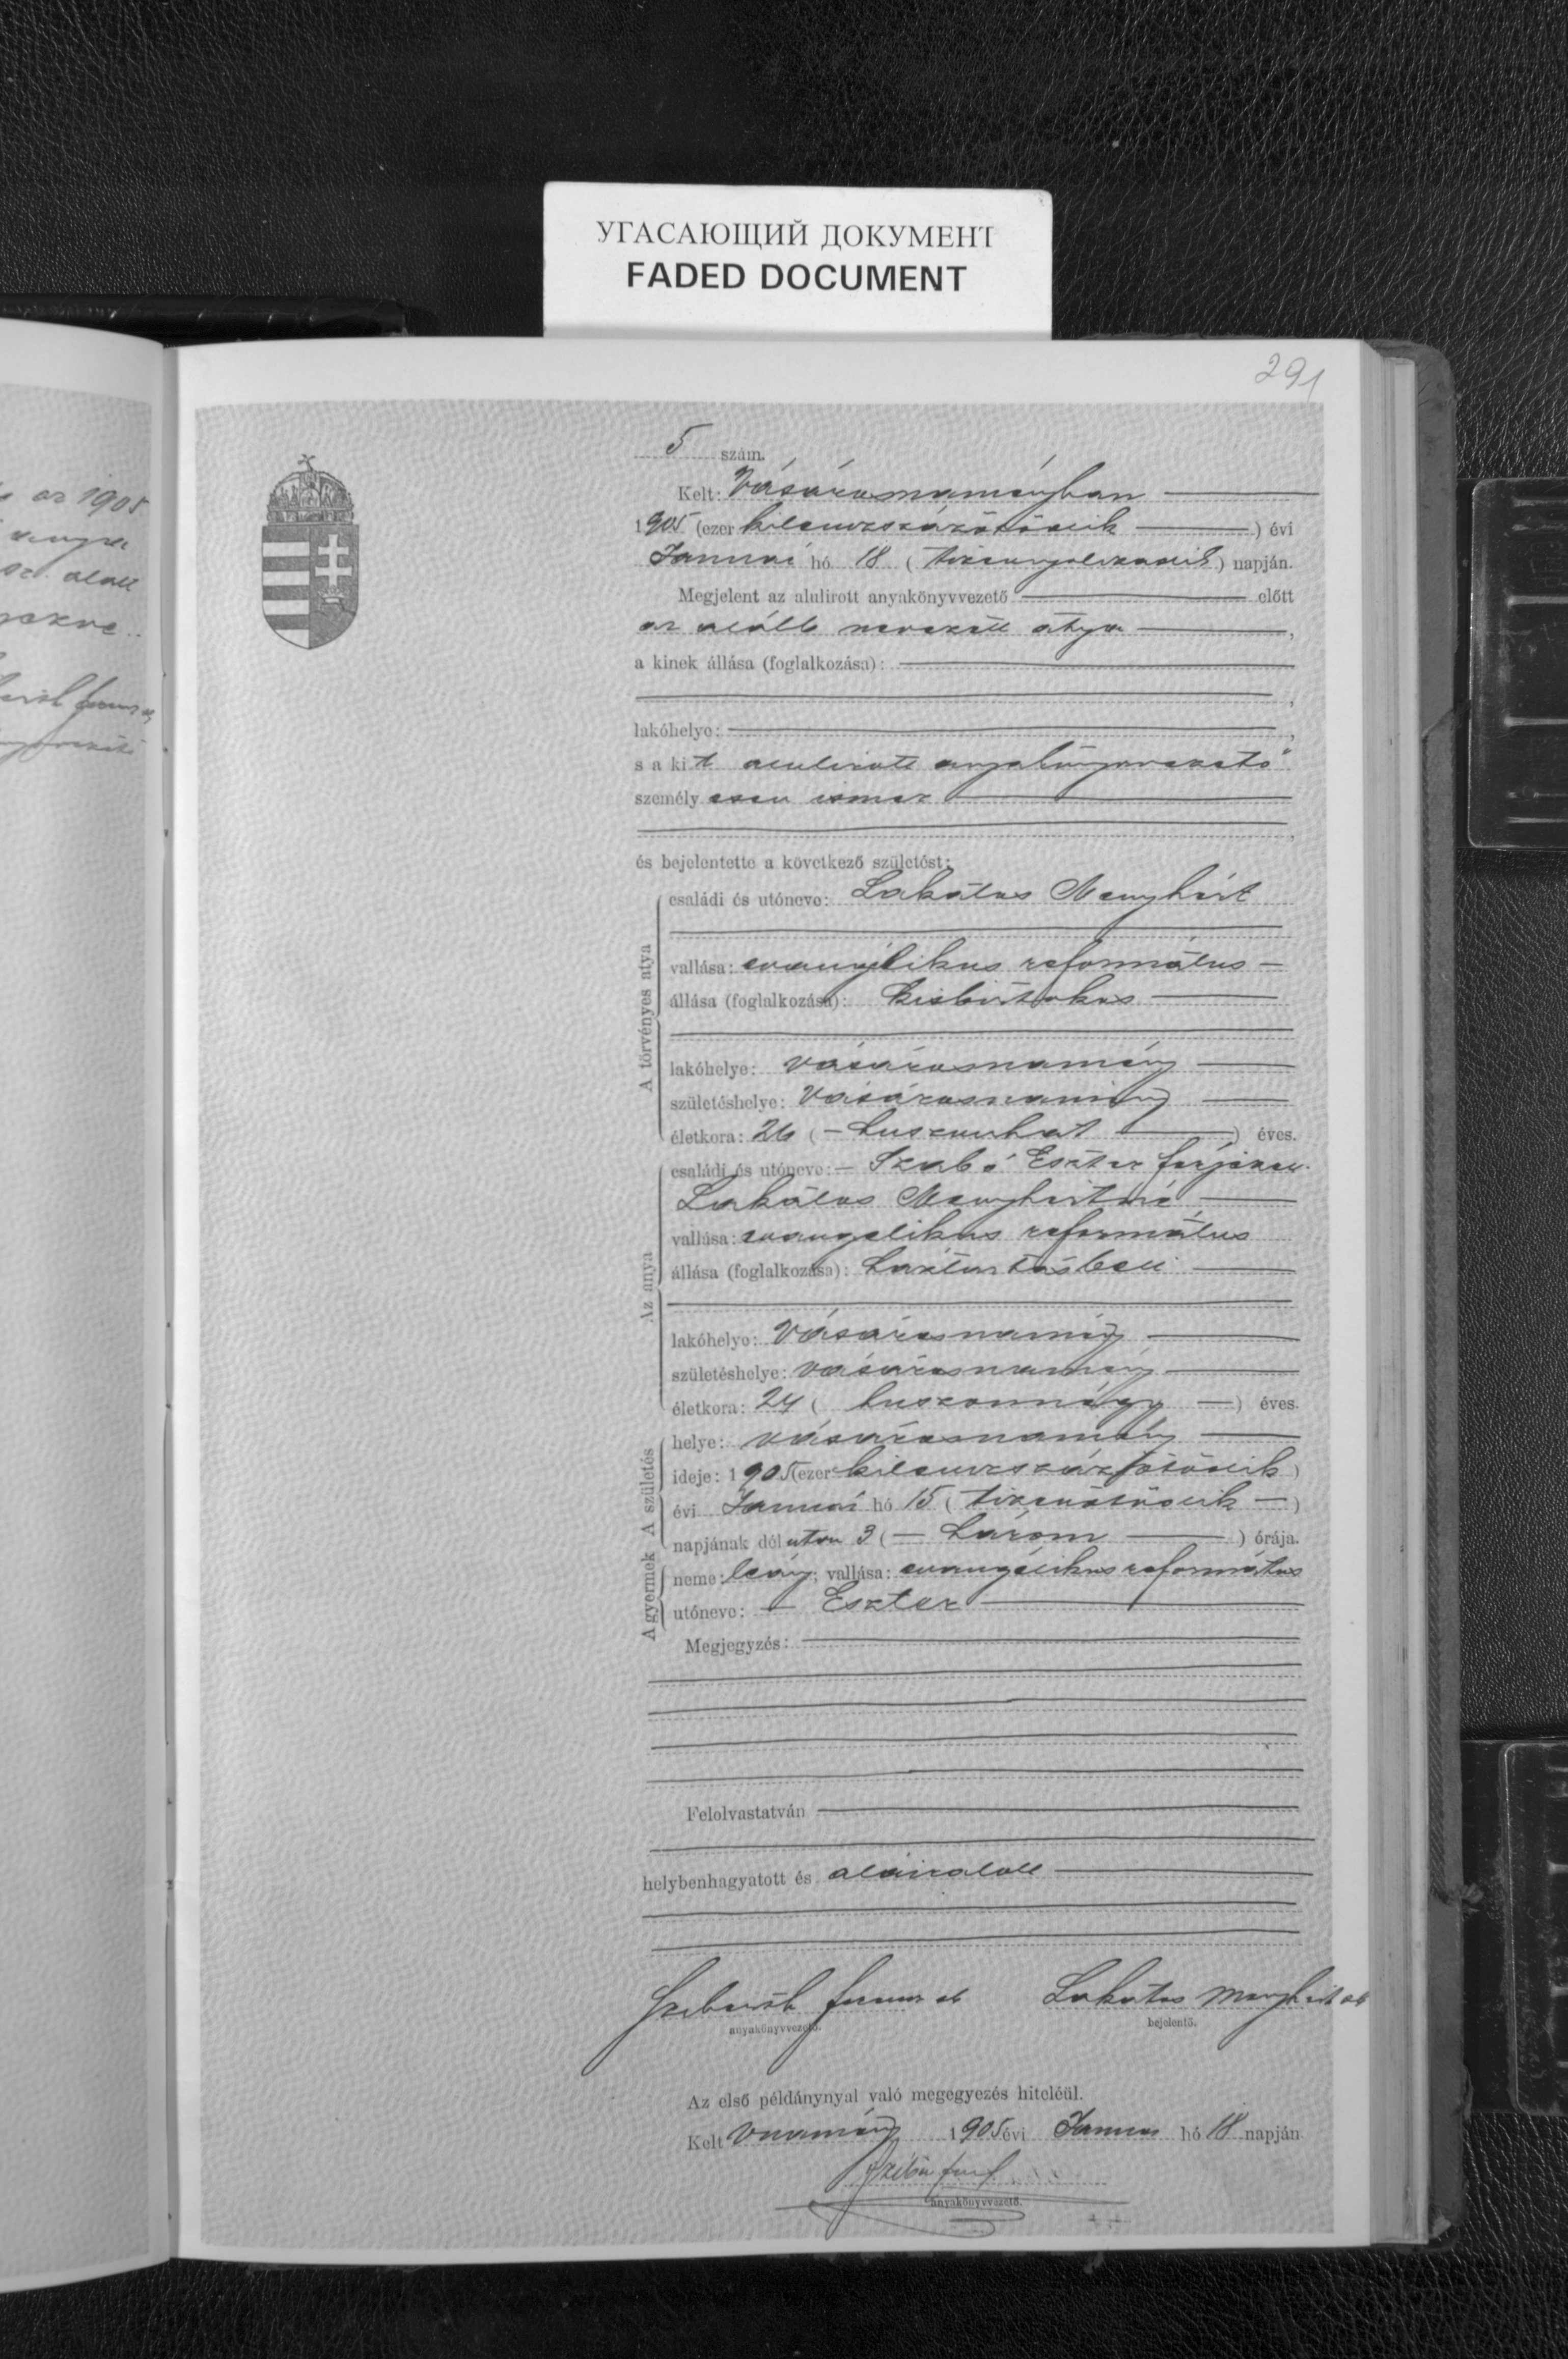 УГАСАЮЩИЙ ДОКУМЕНТ
FADED DOCUMENT
291
az 1905
alatt
5 szám.
Kelt: Vásárosnaményban
1905 (ezer kilenczszázötödik) évi
Januári hó 18 (tizennyolczadik) napján.
Megjelent az alulirott anyakönyvvezető előtt
az alább nevezett atya,
a kinek állása (foglalkozása):
lakóhelye:
s a kit alulirott anyakönyvvezető
személyesen ismer
és bejelentette a következő születést:
A törvényes atya
családi és utóneve: Lakatos Menyhért
vallása: evangélikus református
állása (foglalkozása): kisbirtokos
lakóhelye: Vásárosnamény
születéshelye: Vásárosnamény
életkora: 26 (huszonhat) éves.
Az anya
családi és utóneve: Szabó Eszter férjezett
Lakatos Menyhértné
vallása: evangelikus református
állása (foglalkozása): háztartásbeli
lakóhelye: Vásárosnamény
születéshelye: Vásárosnamény
életkora: 24 (huszonnégy) éves.
A születés
helye: Vásárosnamény
ideje: 1905 (ezer kilenczszázötödik)
évi Januári hó 15 (tizenötödik)
napjának délután 3 (három) órája.
A gyermek
neme: leány; vallása: evangélikus református
utóneve: Eszter
Megjegyzés:
Felolvastatván
helybenhagyatott és aláiratott
Lakatos Menyhért sk
anyakönyvvezető.
bejelentő.
Az első példánynyal való megegyezés hiteléül.
Kelt Vnamény 1905 évi Januári hó 18 napján
anyakönyvvezető.